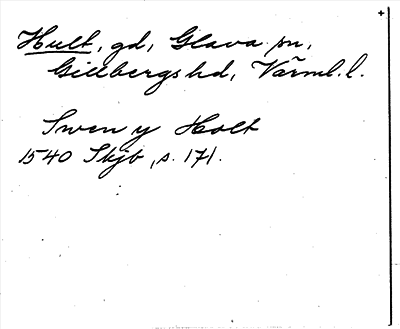 Hult, gd, Glava sn,
Gillbergs hd, Värml. l.
Swen y Holt
1540 Skjb, s. 171.